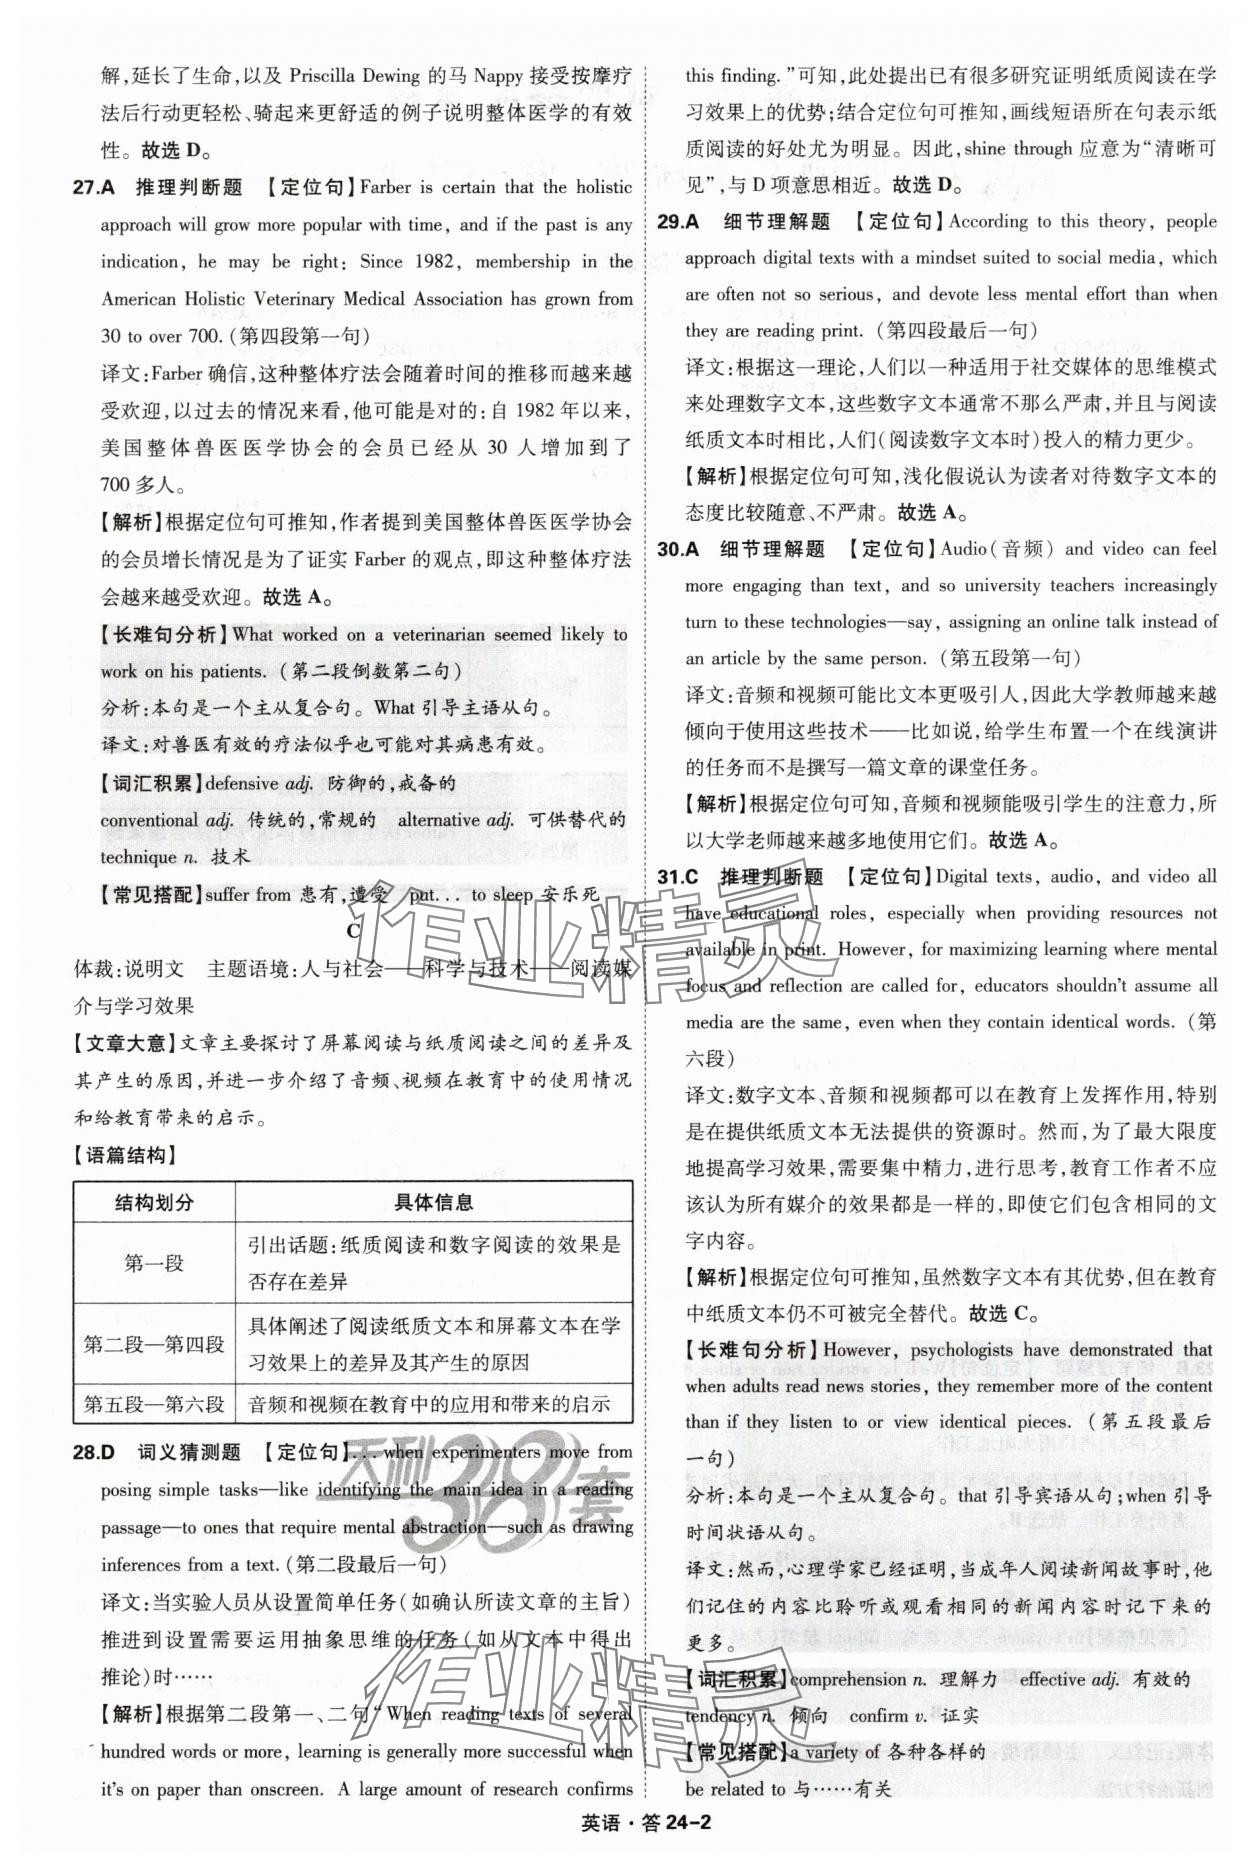 解，延长了生命，以及 Priscilla Dewing 的马 Nappy 接受按摩疗
法后行动更轻松、骑起来更舒适的例子说明整体医学的有效
性。故选 D。
27.A 推理判断题 【定位句】Farber is certain that the holistic
approach will grow more popular with time, and if the past is any
indication, he may be right: Since 1982, membership in the
American Holistic Veterinary Medical Association has grown from
30 to over 700.（第四段第一句）
译文：Farber 确信，这种整体疗法会随着时间的推移而越来越
受欢迎，以过去的情况来看，他可能是对的：自 1982 年以来，
美国整体兽医医学协会的会员已经从 30 人增加到了
700 多人。
【解析】根据定位句可推知，作者提到美国整体兽医医学协会
的会员增长情况是为了证实 Farber 的观点，即这种整体疗法
会越来越受欢迎。故选 A。
【长难句分析】What worked on a veterinarian seemed likely to
work on his patients.（第二段倒数第二句）
分析：本句是一个主从复合句。What 引导主语从句。
译文：对兽医有效的疗法似乎也可能对其病患有效。
【词汇积累】defensive adj. 防御的，戒备的
conventional adj. 传统的，常规的 alternative adj. 可供替代的
technique n. 技术
【常见搭配】suffer from 患有，遭受 put... to sleep 安乐死
C
体裁：说明文 主题语境：人与社会——科学与技术——阅读媒
介与学习效果
【文章大意】文章主要探讨了屏幕阅读与纸质阅读之间的差异及
其产生的原因，并进一步介绍了音频、视频在教育中的使用情况
和给教育带来的启示。
【语篇结构】
结构划分 具体信息
第一段 引出话题：纸质阅读和数字阅读的效果是
否存在差异
第二段—第四段 具体阐述了阅读纸质文本和屏幕文本在学
习效果上的差异及其产生的原因
第五段—第六段 音频和视频在教育中的应用和带来的启示
28.D 词义猜测题 【定位句】... when experimenters move from
posing simple tasks—like identifying the main idea in a reading
passage—to ones that require mental abstraction—such as drawing
inferences from a text.（第二段最后一句）
译文：当实验人员从设置简单任务（如确认所读文章的主旨）
推进到设置需要运用抽象思维的任务（如从文本中得出
推论）时……
【解析】根据第二段第一、二句“When reading texts of several
hundred words or more, learning is generally more successful when
it's on paper than onscreen. A large amount of research confirms
this finding.”可知，此处提出已有很多研究证明纸质阅读在学
习效果上的优势；结合定位句可推知，画线短语所在句表示纸
质阅读的好处尤为明显。因此，shine through 应意为“清晰可
见”，与 D 项意思相近。故选 D。
29.A 细节理解题 【定位句】According to this theory, people
approach digital texts with a mindset suited to social media, which
are often not so serious, and devote less mental effort than when
they are reading print.（第四段最后一句）
译文：根据这一理论，人们以一种适用于社交媒体的思维模式
来处理数字文本，这些数字文本通常不那么严肃，并且与阅读
纸质文本时相比，人们（阅读数字文本时）投入的精力更少。
【解析】根据定位句可知，浅化假说认为读者对待数字文本的
态度比较随意、不严肃。故选 A。
30.A 细节理解题 【定位句】Audio（音频）and video can feel
more engaging than text, and so university teachers increasingly
turn to these technologies—say, assigning an online talk instead of
an article by the same person.（第五段第一句）
译文：音频和视频可能比文本更吸引人，因此大学教师越来越
倾向于使用这些技术——比如说，给学生布置一个在线演讲
的任务而不是撰写一篇文章的课堂任务。
【解析】根据定位句可知，音频和视频能吸引学生的注意力，所
以大学老师越来越多地使用它们。故选 A。
31.C 推理判断题 【定位句】Digital texts, audio, and video all
have educational roles, especially when providing resources not
available in print. However, for maximizing learning where mental
focus and reflection are called for, educators shouldn't assume all
media are the same, even when they contain identical words.（第
六段）
译文：数字文本、音频和视频都可以在教育上发挥作用，特别
是在提供纸质文本无法提供的资源时。然而，为了最大限度
地提高学习效果，需要集中精力，进行思考，教育工作者不应
该认为所有媒介的效果都是一样的，即使它们包含相同的文
字内容。
【解析】根据定位句可推知，虽然数字文本有其优势，但在教育
中纸质文本仍不可被完全替代。故选 C。
【长难句分析】However, psychologists have demonstrated that
when adults read news stories, they remember more of the content
than if they listen to or view identical pieces.（第五段最后
一句）
分析：本句是一个主从复合句。that 引导宾语从句；when 引导
时间状语从句。
译文：然而，心理学家已经证明，当成年人阅读新闻故事时，他
们记住的内容比聆听或观看相同的新闻内容时记下来的
更多。
【词汇积累】comprehension n. 理解力 effective adj. 有效的
tendency n. 倾向 confirm v. 证实
【常见搭配】a variety of 各种各样的
be related to 与……有关
英语·答 24-2
作业精灵
天利38套
作业精灵